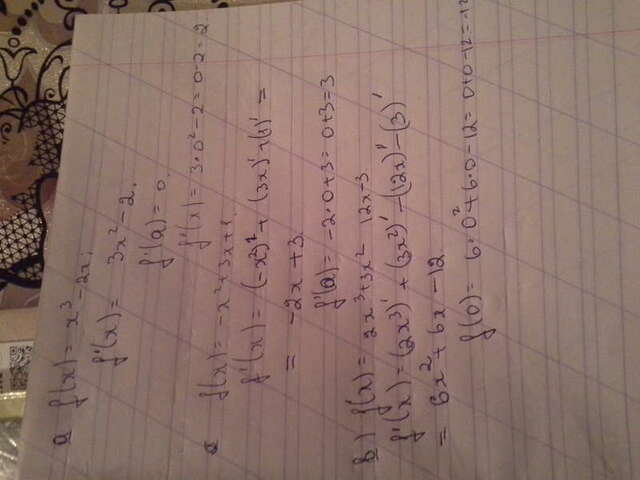 a f(x) = x³ - 2x;
f'(x) = 3x² - 2.
f'(a) = 0.
f'(x) = 3·0² - 2 = 0 - 2 = 2
c f(x) = -x² + 3x + 1
f'(x) = (-x²)² + (3x)' + (1)' =
= -2x + 3
f'(a) = -2·0 + 3 = 0 + 3 = 3
b) f(x) = 2x³ + 3x² - 12x - 3
f'(x) = (2x³)' + (3x²)' - (12x)' - (3)'
= 6x² + 6x - 12
f(0) = 6·0² + 6·0 - 12 = 0 + 0 - 12 = -12